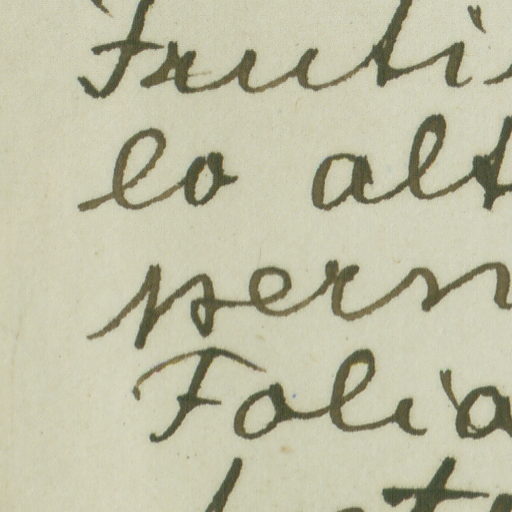 Fruti
lo alt
pern
Folia